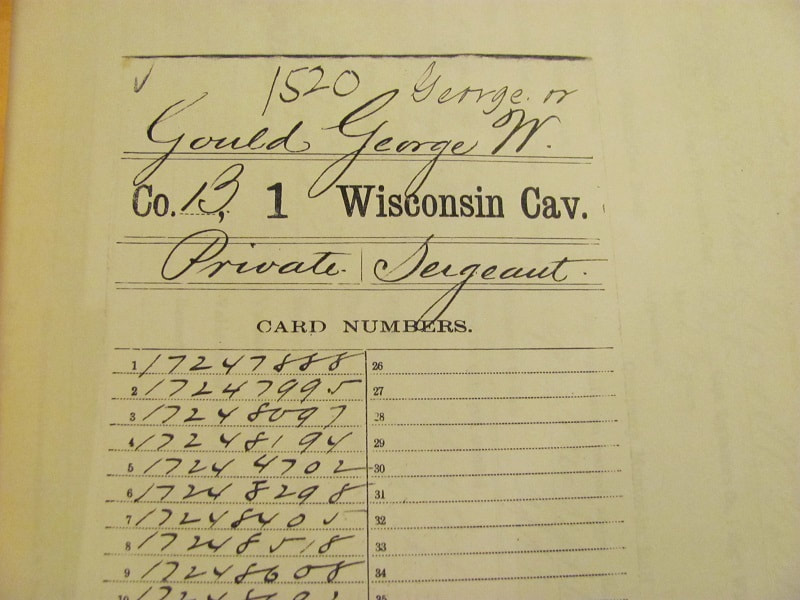 1520 George. or
Gould George W.
Co. B, 1 Wisconsin Cav.
Private. | Sergeant.
CARD NUMBERS.
1 17247888 26
2 17247995 27
3 17248097 28
4 17248194 29
5 17244702 30
6 17248298 31
7 17248405 32
8 17248518 33
9 17248608 34
10 35